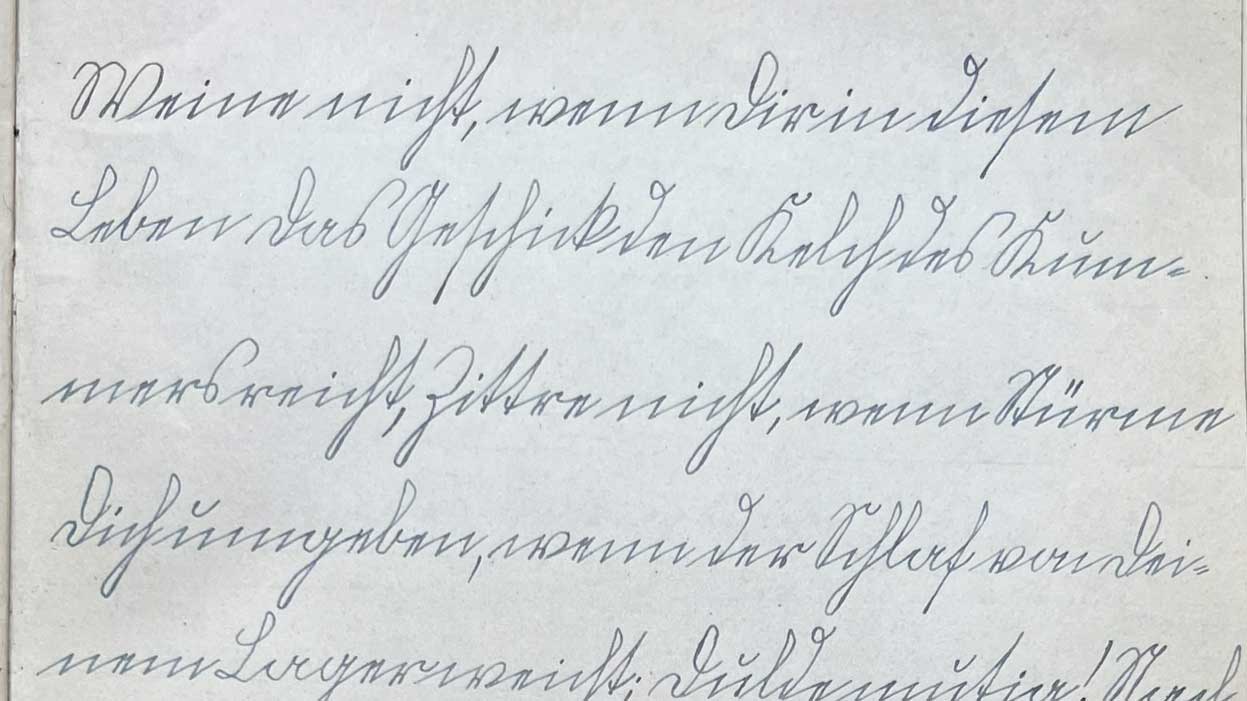 Weine nicht, wenn Dir in diesem
Leben das Geschick den Kelch des Kum-
mers reicht, Zittre nicht, wenn Stürme
Dich umgeben, wenn der Schlaf von Dei-
nem Lager weicht; Dulde mutig! Nach